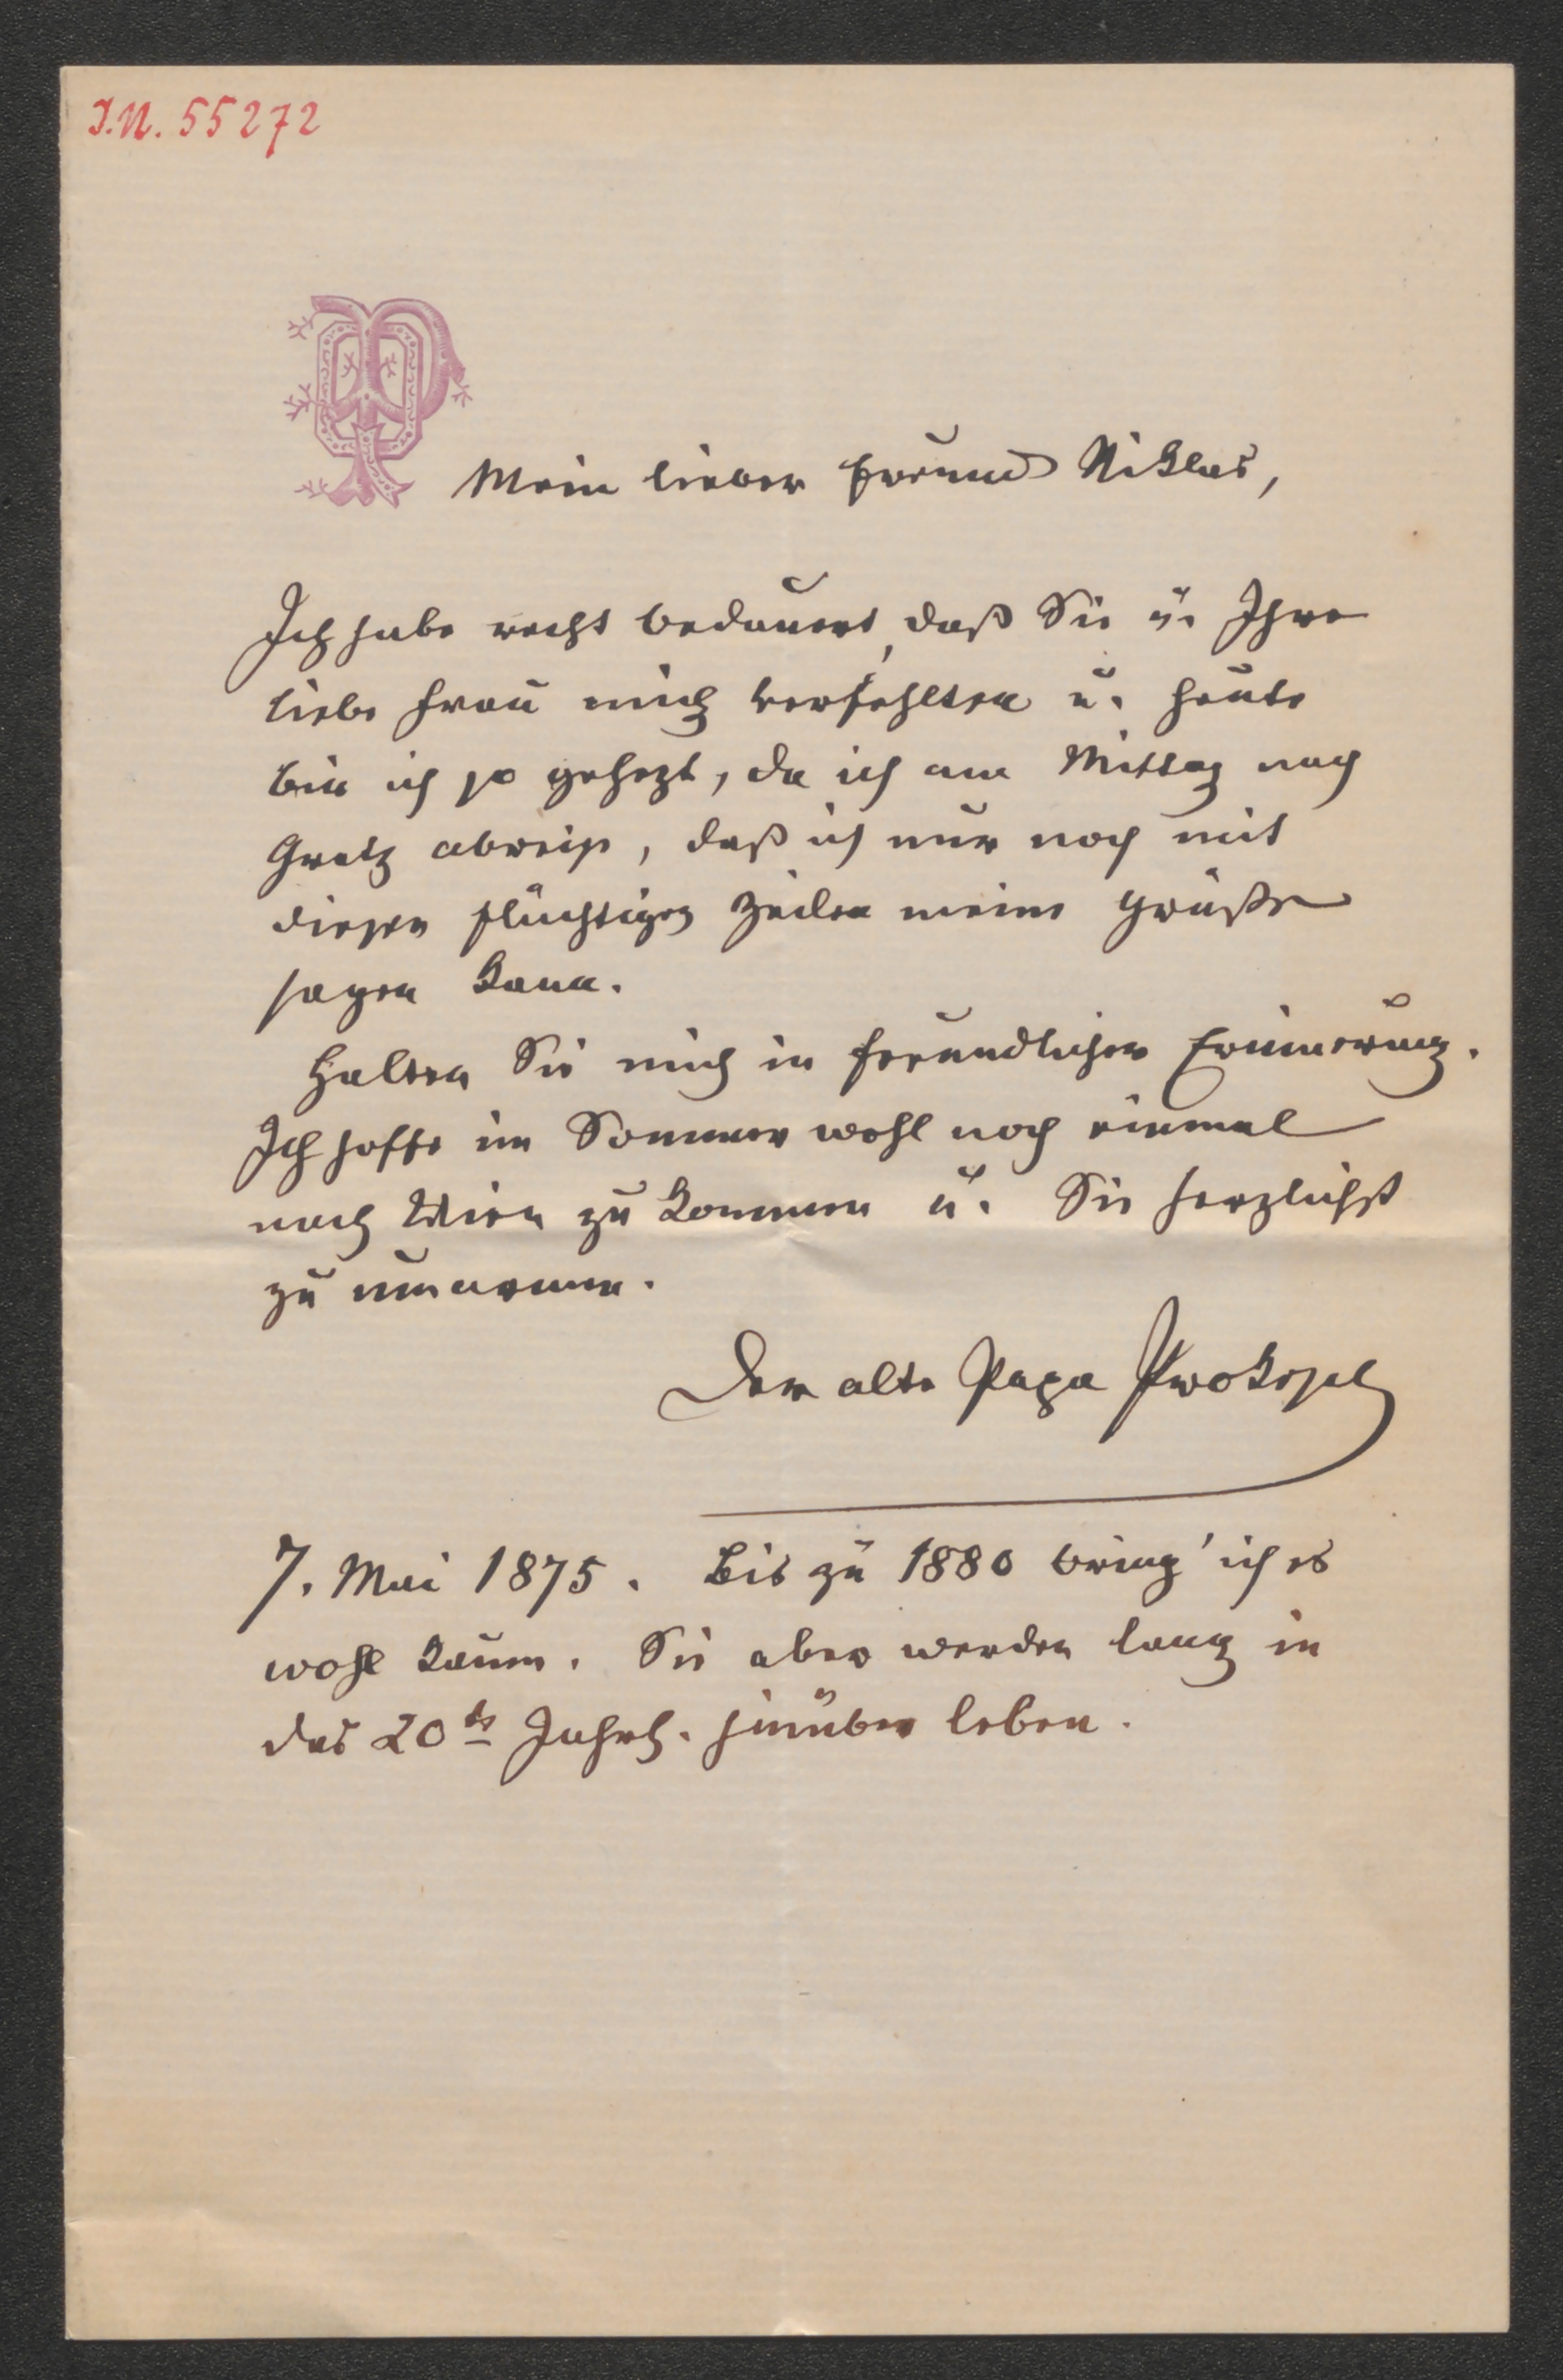 I.N. 55272
Mein lieber Freund Niklas,
Ich habe recht bedauert, daß Sie u. Ihre
liebe Frau mich verfehlten u. heute
bin ich so gehezt, da ich am Mittag nach
Gratz abreise, daß ich nur noch mit
diesen flüchtigen Zeilen meine Grüße
sagen kann.
Halten Sie mich in freundlicher Erinnerung.
Ich hoffe im Sommer wohl noch einmal
nach Wien zu kommen u. Sie herzlichst
zu umarmen.
Der alte Papa Prokesch
7. Mai 1875. Bis zu 1880 bring' ich es
wohl kaum. Sie aber werden lang in
das 20ts Jahrh. hinüber leben.